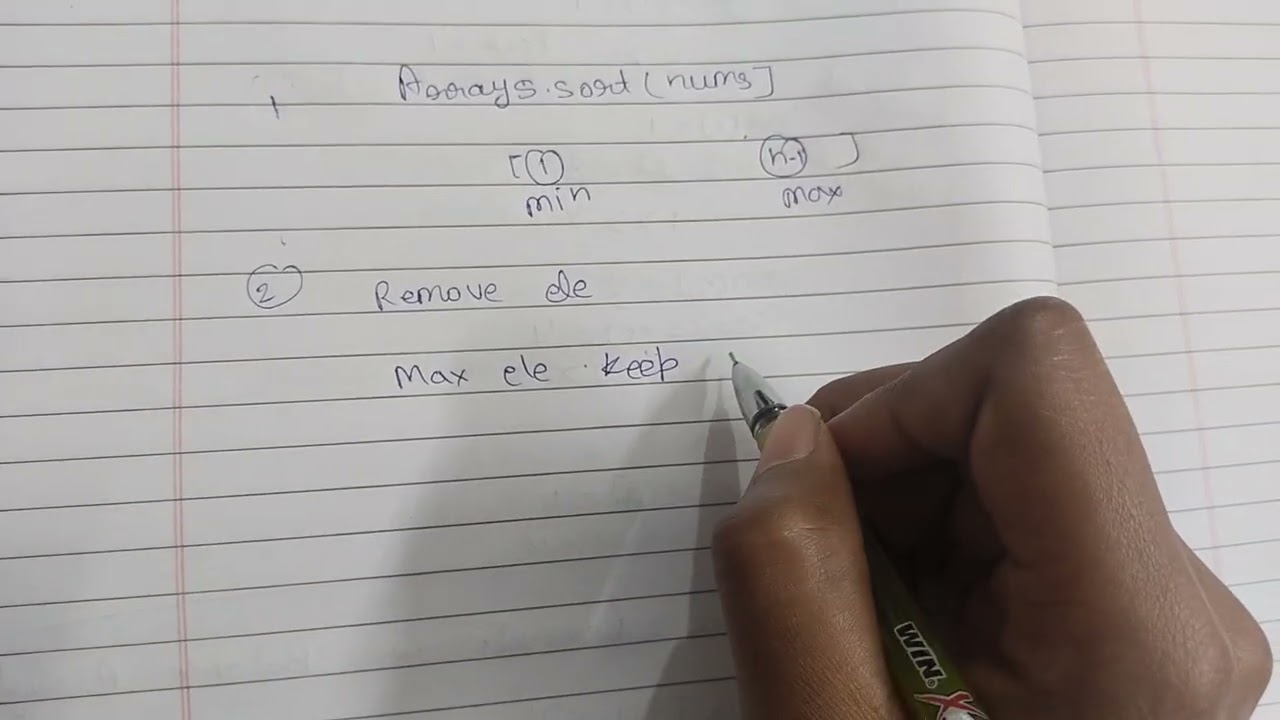 1 Arrays.sort (nums]
[ 1 n-1 ]
min max
2 Remove ele
Max ele. keep
WIN X